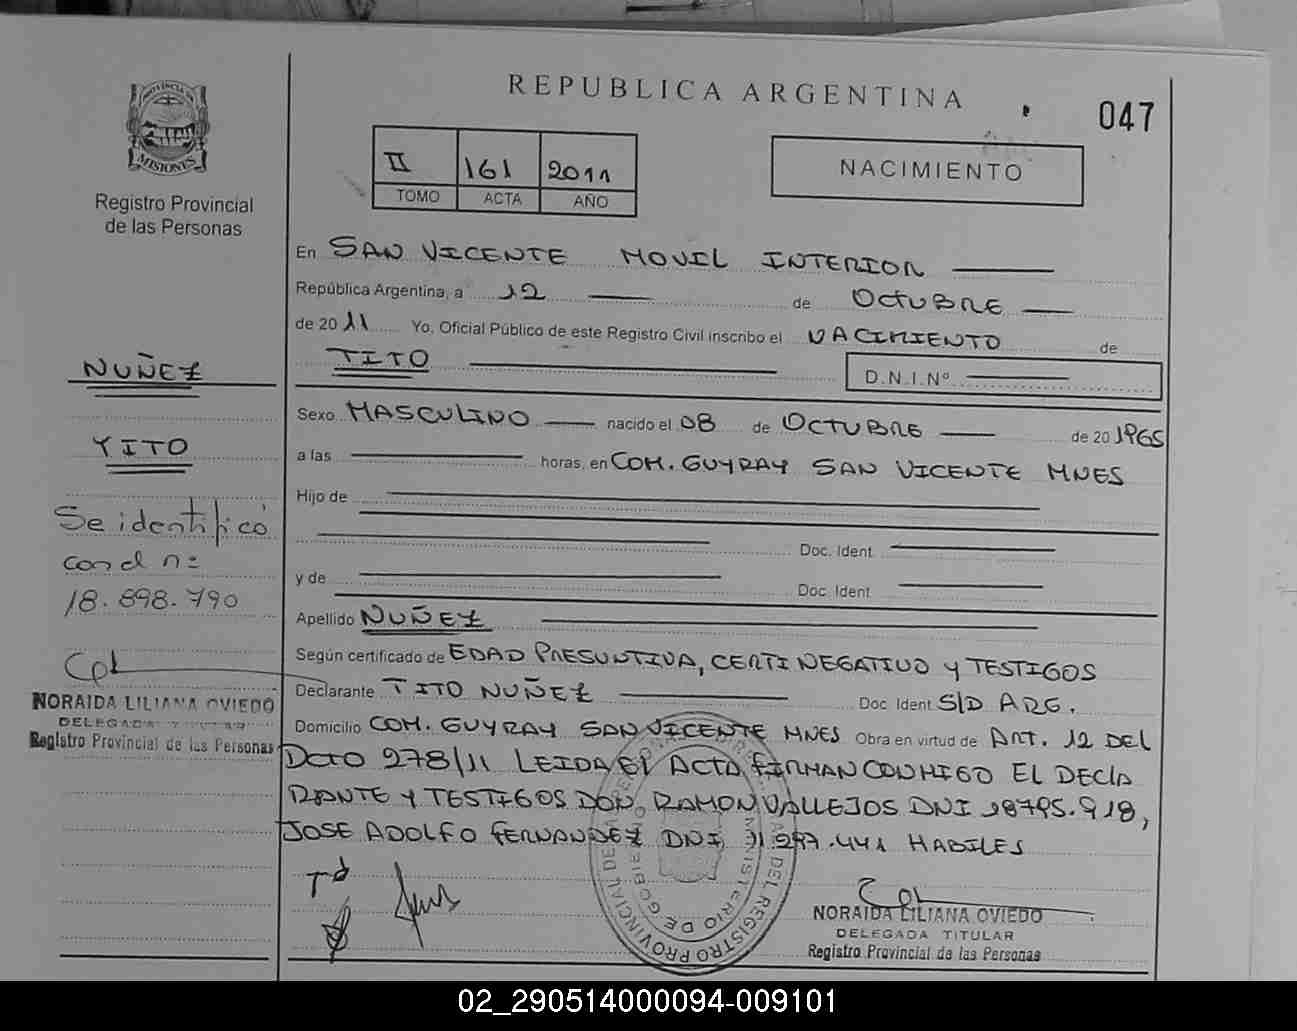 REPUBLICA ARGENTINA
047
PROVINCIA DE
MISIONES
Registro Provincial
de las Personas
II 161 2011
TOMO ACTA AÑO
NACIMIENTO
En SAN VICENTE MOVIL INTERIOR
República Argentina, a 12 de OCTUBRE
de 2011 Yo, Oficial Público de este Registro Civil inscribo el NACIMIENTO de
TITO
D.N.I.Nº
NUÑEZ
TITO
Se identificó
con d nº
18.898.790
NORAIDA LILIANA OVIEDO
DELEGADA TITULAR
Registro Provincial de las Personas
Sexo MASCULINO nacido el 08 de OCTUBRE de 20 1965
a las horas, en COM. GUYRAY SAN VICENTE MNES
Hijo de
Doc. Ident.
y de
Doc. Ident.
Apellido NUÑEZ
Según certificado de EDAD PRESUNTIVA, CERTI NEGATIVO Y TESTIGOS
Declarante TITO NUÑEZ Doc. Ident. S/D ARG.
Domicilio COM. GUYRAY SAN VICENTE MNES Obra en virtud de ART. 12 DEL
DCTO 278/11 LEIDA EL ACTA FIRMAN CONMIGO EL DECLA
RANTE Y TESTIGOS DON RAMON VALLEJOS DNI 18795.918,
JOSE ADOLFO FERNANDEZ DNI 11.297.441 HABILES
NORAIDA LILIANA OVIEDO
DELEGADA TITULAR
Registro Provincial de las Personas
MINISTERIO DE GOBIERNO
02_290514000094-009101